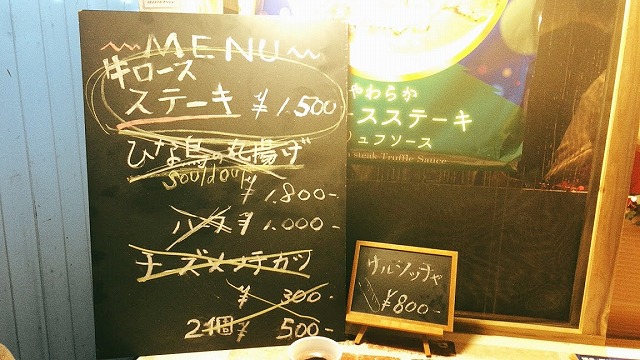 MENU
牛ロース
ステーキ ¥1.500-
ひな鳥の丸揚げ
Souldout!
¥1.800-
ハーフ ¥1.000-
チーズメンチカツ
¥300-
2個 ¥500-
やわらか
ースステーキ
ュフソース
steak Truffle Sauce
サルシッチャ
¥800-